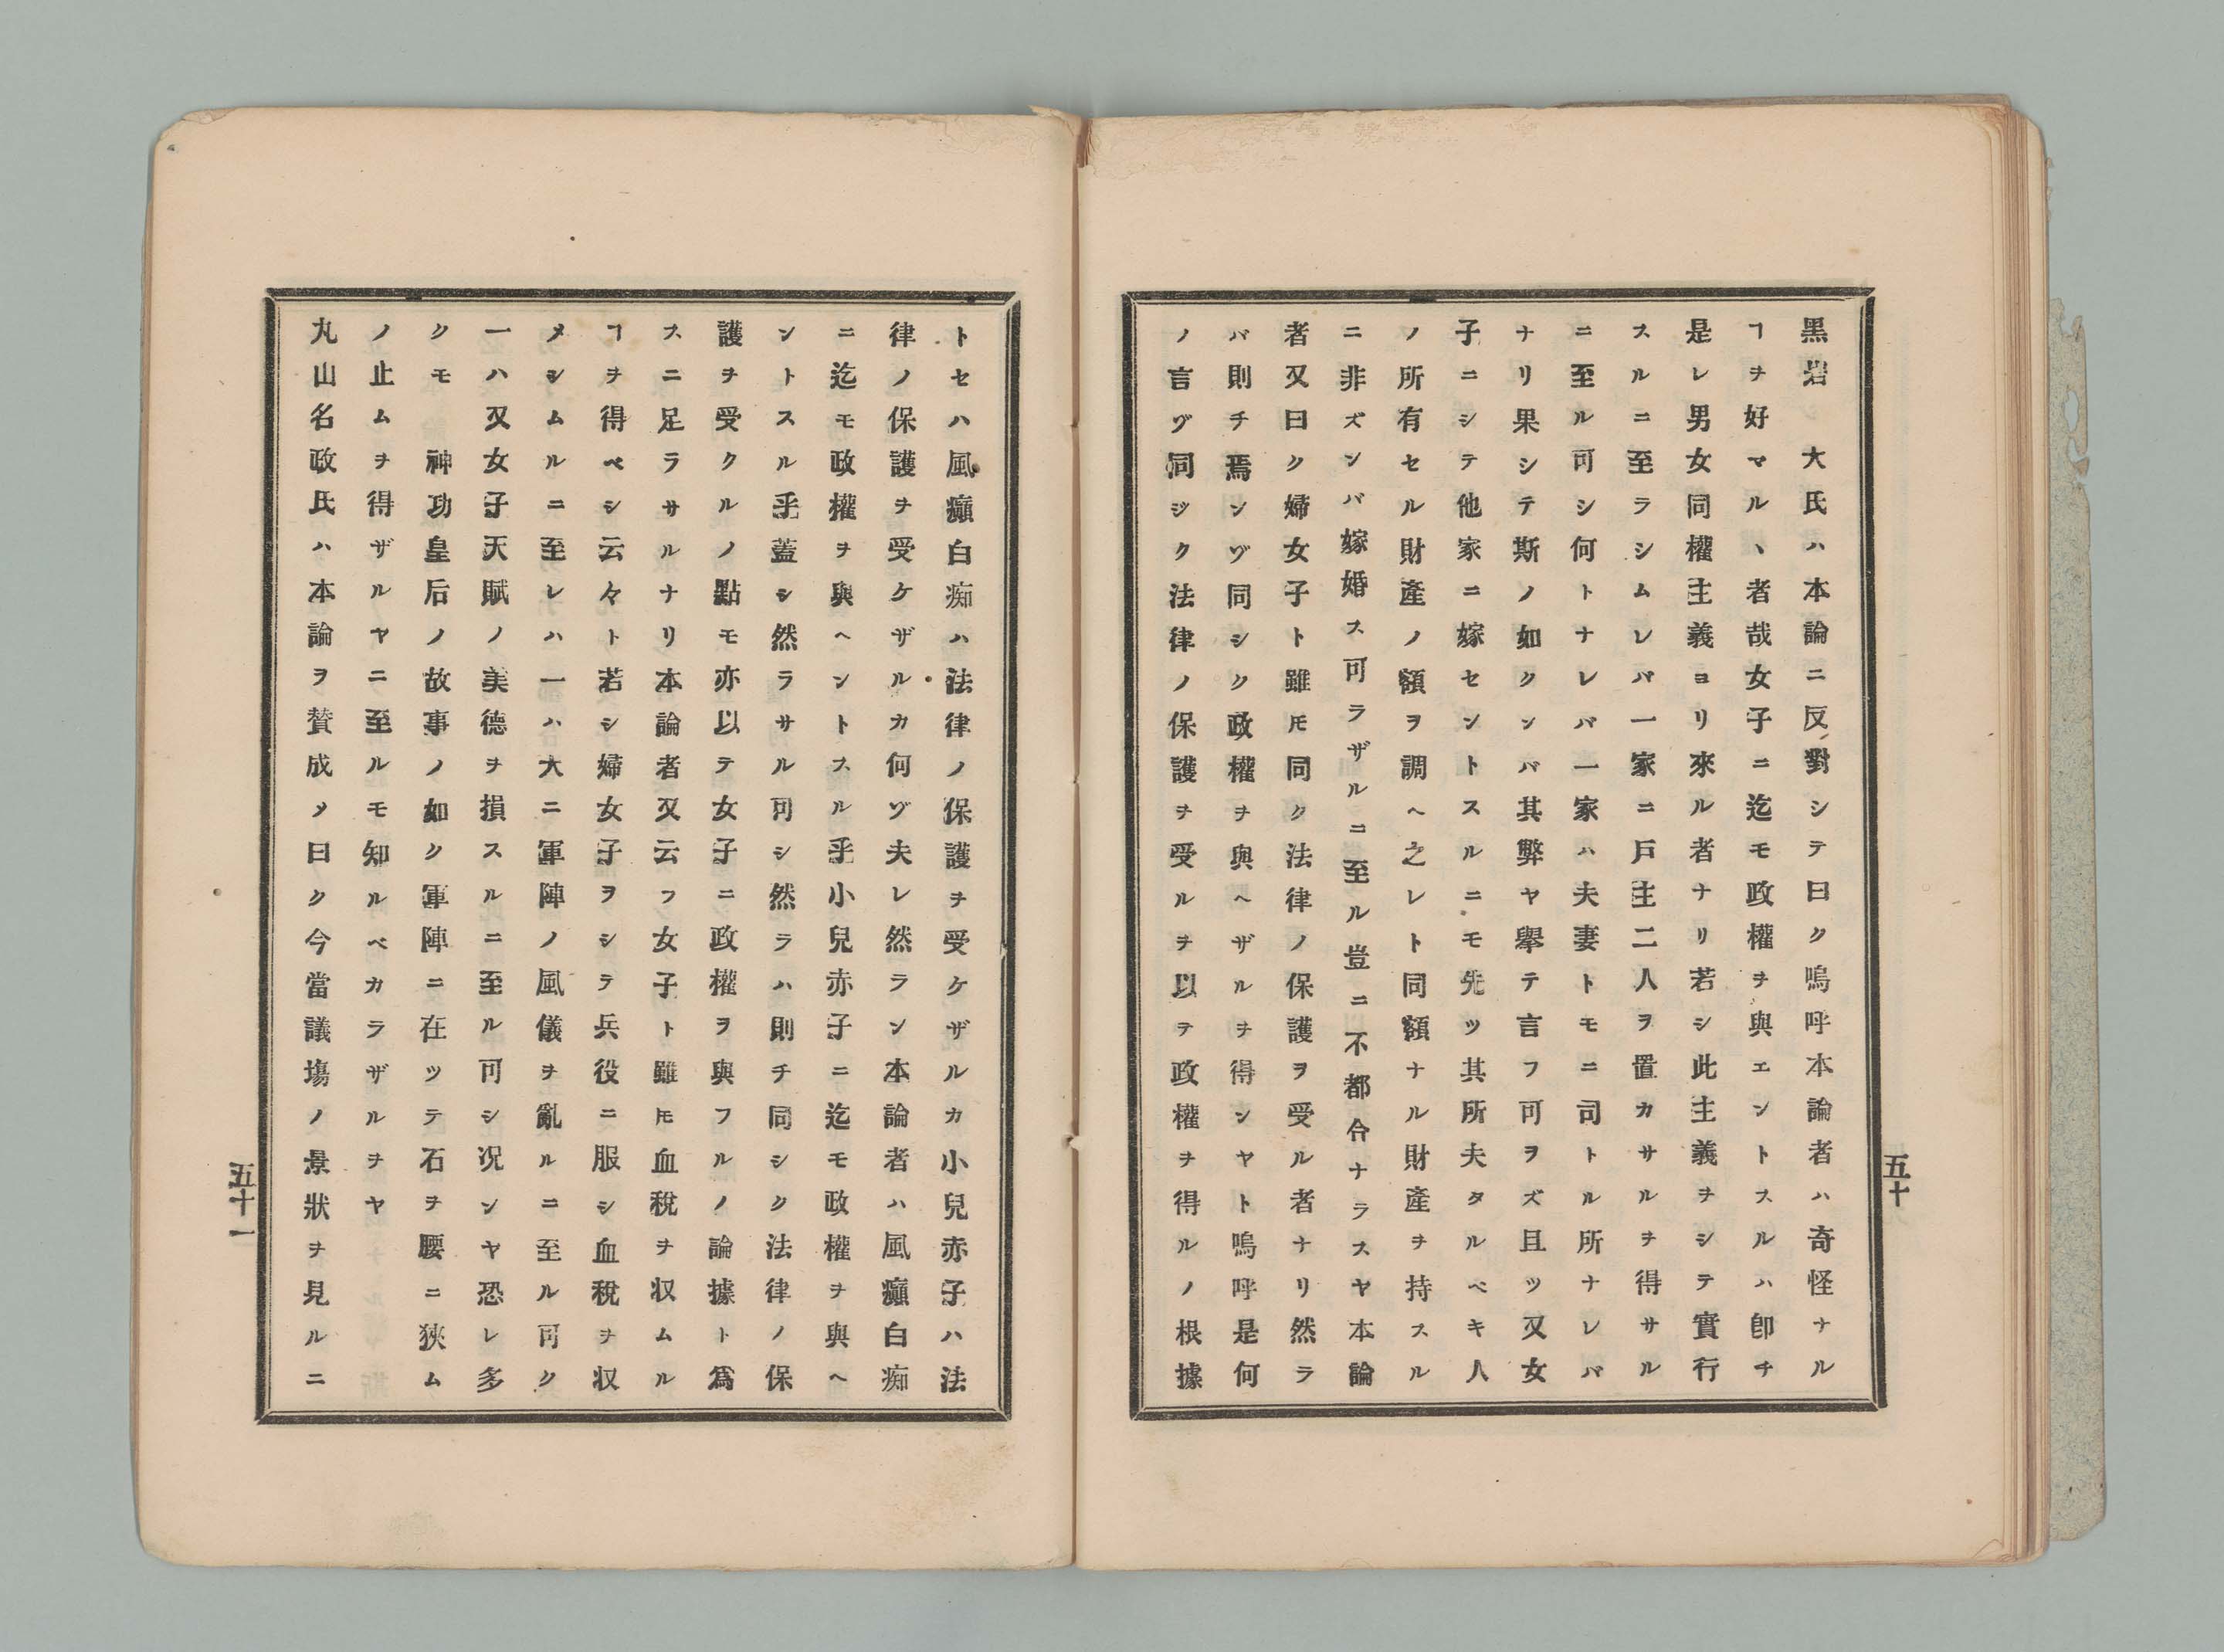 黑岩　大氏ハ本論ニ反對シテ曰ク嗚呼本論者ハ奇怪ナル
ヿヲ好マル丶者哉女子ニ迄モ政權ヲ與エントスルハ卽チ
是レ男女同權主義ヨリ來ル者ナリ若シ此主義ヲシテ實行
スルニ至ラシムレバ一家ニ戸主二人ヲ置カサルヲ得サル
ニ至ル可シ何トナレバ一家ハ夫妻トモニ司トル所ナレバ
ナリ果シテ斯ノ如クンバ其弊ヤ擧テ言フ可ヲズ且ツ又女
子ニシテ他家ニ嫁セントスルニモ先ツ其所夫タルベキ人
ノ所有セル財產ノ額ヲ調ヘ之レト同額ナル財產ヲ持スル
ニ非ズンバ嫁婚ス可ラザルニ至ル豈ニ不都合ナラスヤ本論
者又曰ク婦女子ト雖モ同ク法律ノ保護ヲ受ル者ナリ然ラ
バ則チ焉ンゾ同シク政權ヲ與ヘザルヲ得ンヤト嗚呼是何
ノ言ゾ同ジク法律ノ保護ヲ受ルヲ以テ政權ヲ得ルノ根據
五十
トセハ風癲白痴ハ法律ノ保護ヲ受ケザルカ小兒赤子ハ法
律ノ保護ヲ受ケザルカ何ゾ夫レ然ラン本論者ハ風癲白痴
ニ迄モ政權ヲ與ヘントスル乎小兒赤子ニ迄モ政權ヲ與ヘ
ントスル乎蓋シ然ラサル可シ然ラハ則チ同シク法律ノ保
護ヲ受クルノ點モ亦以テ女子ニ政權ヲ與フルノ論據ト爲
スニ足ラサルナリ本論者又云フ女子ト雖モ血稅ヲ収ムル
ヿヲ得ベシ云々ト若シ婦女子ヲシテ兵役ニ服シ血稅ヲ収
メシムルニ至レハ一ハ大ニ軍陣ノ風儀ヲ亂ルニ至ル可ク
一ハ又女子天賦ノ美德ヲ損スルニ至ル可シ况ンヤ恐レ多
クモ　神功皇后ノ故事ノ如ク軍陣ニ在ッテ石ヲ腰ニ狹ム
ノ止ムヲ得ザルヤニ至ルモ知ルベカラザルヲヤ
丸山名政氏ハ本論ヲ贊成メ曰ク今當議塲ノ景狀ヲ見ルニ
五十一